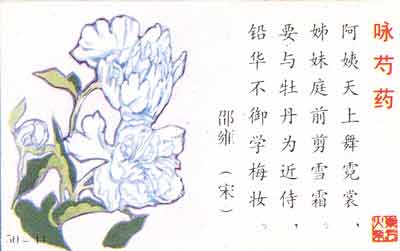 咏芍药
阿姨天上舞霓裳，
姊妹庭前剪雪霜。
要与牡丹为近侍，
铅华不御学梅妆。
邵雍（宋）